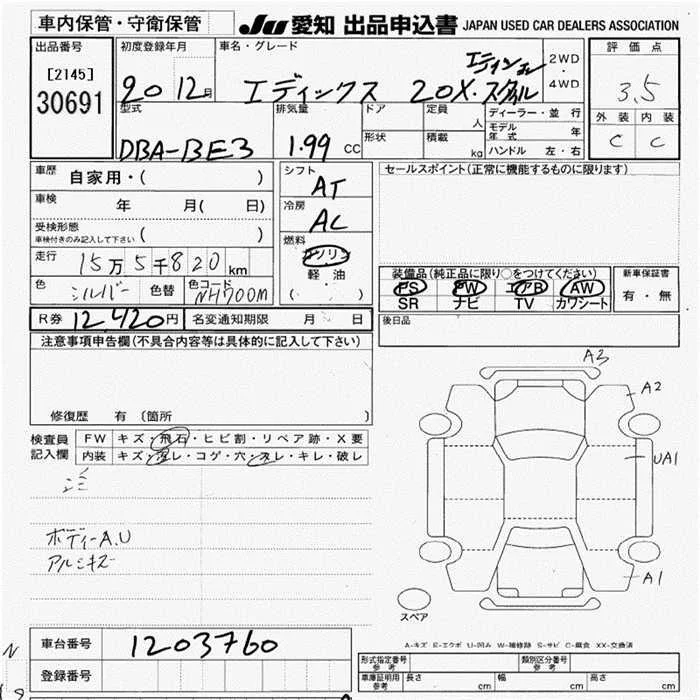 車内保管・守衛保管
JU 愛知 出品申込書 JAPAN USED CAR DEALERS ASSOCIATION
出品番号
[2145]
30691
初度登録年月
20 12月
車名・グレード
エディックス 20X・スタイル
エディション
2WD
・
4WD
評価点
3.5
外装 内装
C C
型式
DBA-BE3
排気量
1.99 CC
ドア
形状
定員
人
積載
kg
ディーラー・並行
モデル年式 年
ハンドル 左・右
車歴 自家用・( )
車検 年 月( 日)
受検形態
車検付きのみ記入して下さい ( )
走行 15万5千820km
色 シルバー 色替 色コード NH700M
シフト
AT
冷房
AC
燃料
ガソリン
軽油
( ・ )
セールスポイント(正常に機能するものに限ります)
装備品(純正品に限り○をつけてください)
PS PW エアB AW
SR ナビ TV カワシート
新車保証書
有・無
R券 12,420円 名変通知期限 月 日
後日品
注意事項申告欄(不具合内容等は具体的に記入して下さい)
修復歴 有 (箇所 )
検査員
記入欄
FW キズ・飛石・ヒビ割・リペア跡・X要
内装 キズ・汚レ・コゲ・穴・スレ・キレ・破レ
ボディーA.U
アルミキズ
A3
A2
UA1
A1
スペア
A-キズ E-エクボ U-凹み W-補修跡 S-サビ C-腐食 XX-交換済
車台番号 1203760
登録番号
形式指定番号
参考
類別区分番号
参考
車庫証明用
参考
長さ cm 幅 cm 高さ cm
N